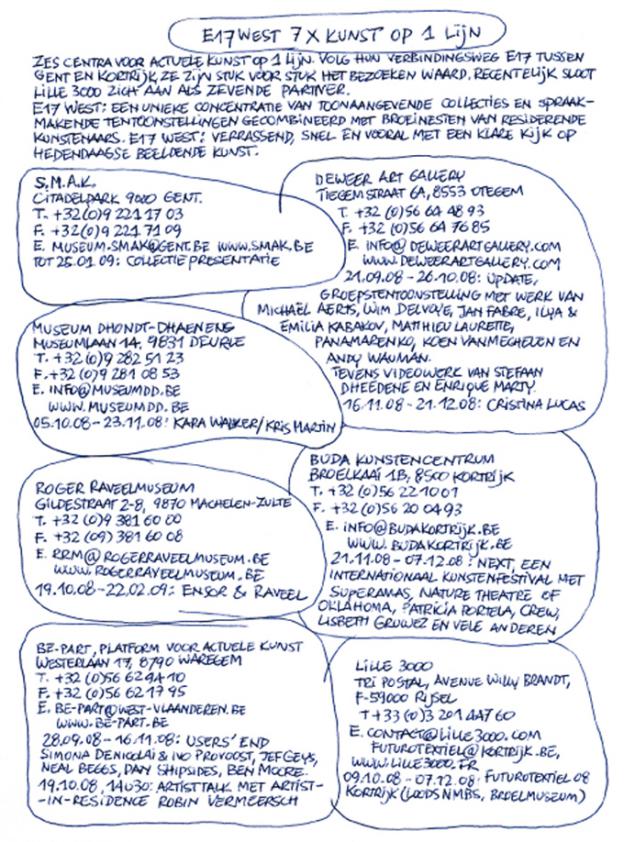 E17 WEST 7 X KUNST OP 1 LIJN
ZES CENTRA VOOR ACTUELE KUNST OP 1 LIJN. VOLG HUN VERBINDINGSWEG E17 TUSSEN
GENT EN KORTRIJK, ZE ZIJN STUK VOOR STUK HET BEZOEKEN WAARD, RECENTELIJK SLOOT
LILLE 3000 ZICH AAN ALS ZEVENDE PARTNER.
E17 WEST: EEN UNIEKE CONCENTRATIE VAN TOONAANGEVENDE COLLECTIES EN SPRAAK-
MAKENDE TENTOONSTELLINGEN GECOMBINEERD MET BROEINESTEN VAN RESIDERENDE
KUNSTENAARS. E17 WEST: VERRASSEND, SNEL EN VOORAL MET EEN KLARE KIJK OP
HEDENDAAGSE BEELDENDE KUNST.
S.M.A.K.
CITADELPARK 9000 GENT.
T. +32(0)9 221 17 03
F. +32(0)9 221 71 09
E. MUSEUM.SMAK@GENT.BE WWW.SMAK.BE
TOT 25.01.09: COLLECTIEPRESENTATIE
DEWEER ART GALLERY
TIEGEMSTRAAT 6A, 8553 OTEGEM
T. +32 (0)56 64 48 93
F. +32 (0)56 64 76 85
E. INFO@DEWEERARTGALLERY.COM
WWW.DEWEERARTGALLERY.COM
21.09.08 - 26.10.08: UPDATE,
GROEPSTENTOONSTELLING MET WERK VAN
MICHAËL AERTS, WIM DELVOYE, JAN FABRE, ILYA &
EMILIA KABAKOV, MATTHIEU LAURETTE,
PANAMARENKO, KOEN VANMECHELEN EN
ANDY WAUMAN.
TEVENS VIDEOWERK VAN STEFAAN
DHEEDENE EN ENRIQUE MARTY.
16.11.08 - 21.12.08: CRISTINA LUCAS
MUSEUM DHONDT-DHAENENS
MUSEUMLAAN 14, 9831 DEURLE
T. +32(0)9 282 51 23
F. +32(0)9 281 08 53
E. INFO@MUSEUMDD.BE
WWW.MUSEUMDD.BE
05.10.08 - 23.11.08: KARA WALKER/KRIS MARTIN
BUDA KUNSTENCENTRUM
BROELKAAI 1B, 8500 KORTRIJK
T. +32 (0)56 22 10 01
F. +32 (0)56 20 04 93
E. INFO@BUDAKORTRIJK.BE
WWW.BUDAKORTRIJK.BE
21.11.08 - 07.12.08: NEXT, EEN
INTERNATIONAAL KUNSTENFESTIVAL MET
SUPERAMAS, NATURE THEATRE OF
OKLAHOMA, PATRICIA PORTELA, CREW,
LISBETH GRUWEZ EN VELE ANDEREN
ROGER RAVEELMUSEUM
GILDESTRAAT 2-8, 9870 MACHELEN-ZULTE
T. +32 (0)9 381 60 00
F. +32 (09) 381 60 08
E. RRM@ROGERRAVEELMUSEUM.BE
WWW.ROGERRAVEELMUSEUM.BE
19.10.08 - 22.02.09: ENSOR & RAVEEL
BE-PART, PLATFORM VOOR ACTUELE KUNST
WESTERLAAN 17, 8790 WAREGEM
T. +32 (0)56 62 94 10
F. +32 (0)56 62 17 95
E. BE-PART@WEST-VLAANDEREN.BE
WWW.BE-PART.BE
28.09.08 - 16.11.08: USERS' END
SIMONA DENICOLAI & IVO PROVOOST, JEF GEYS,
NEAL BEGGS, DAN SHIPSIDES, BEN MOORE.
19.10.08, 14U30: ARTISTTALK MET ARTIST-
-IN-RESIDENCE ROBIN VERMEERSCH
LILLE 3000
TRI POSTAL, AVENUE WILLY BRANDT,
F-59000 RIJSEL
T +33(0)3 201 447 60
E. CONTACT@LILLE3000.COM
FUTUROTEXTIEL@KORTRIJK.BE,
WWW.LILLE3000.FR
09.10.08 - 07.12.08: FUTUROTEXTIEL 08
KORTRIJK (LOODS NMBS, BROELMUSEUM)